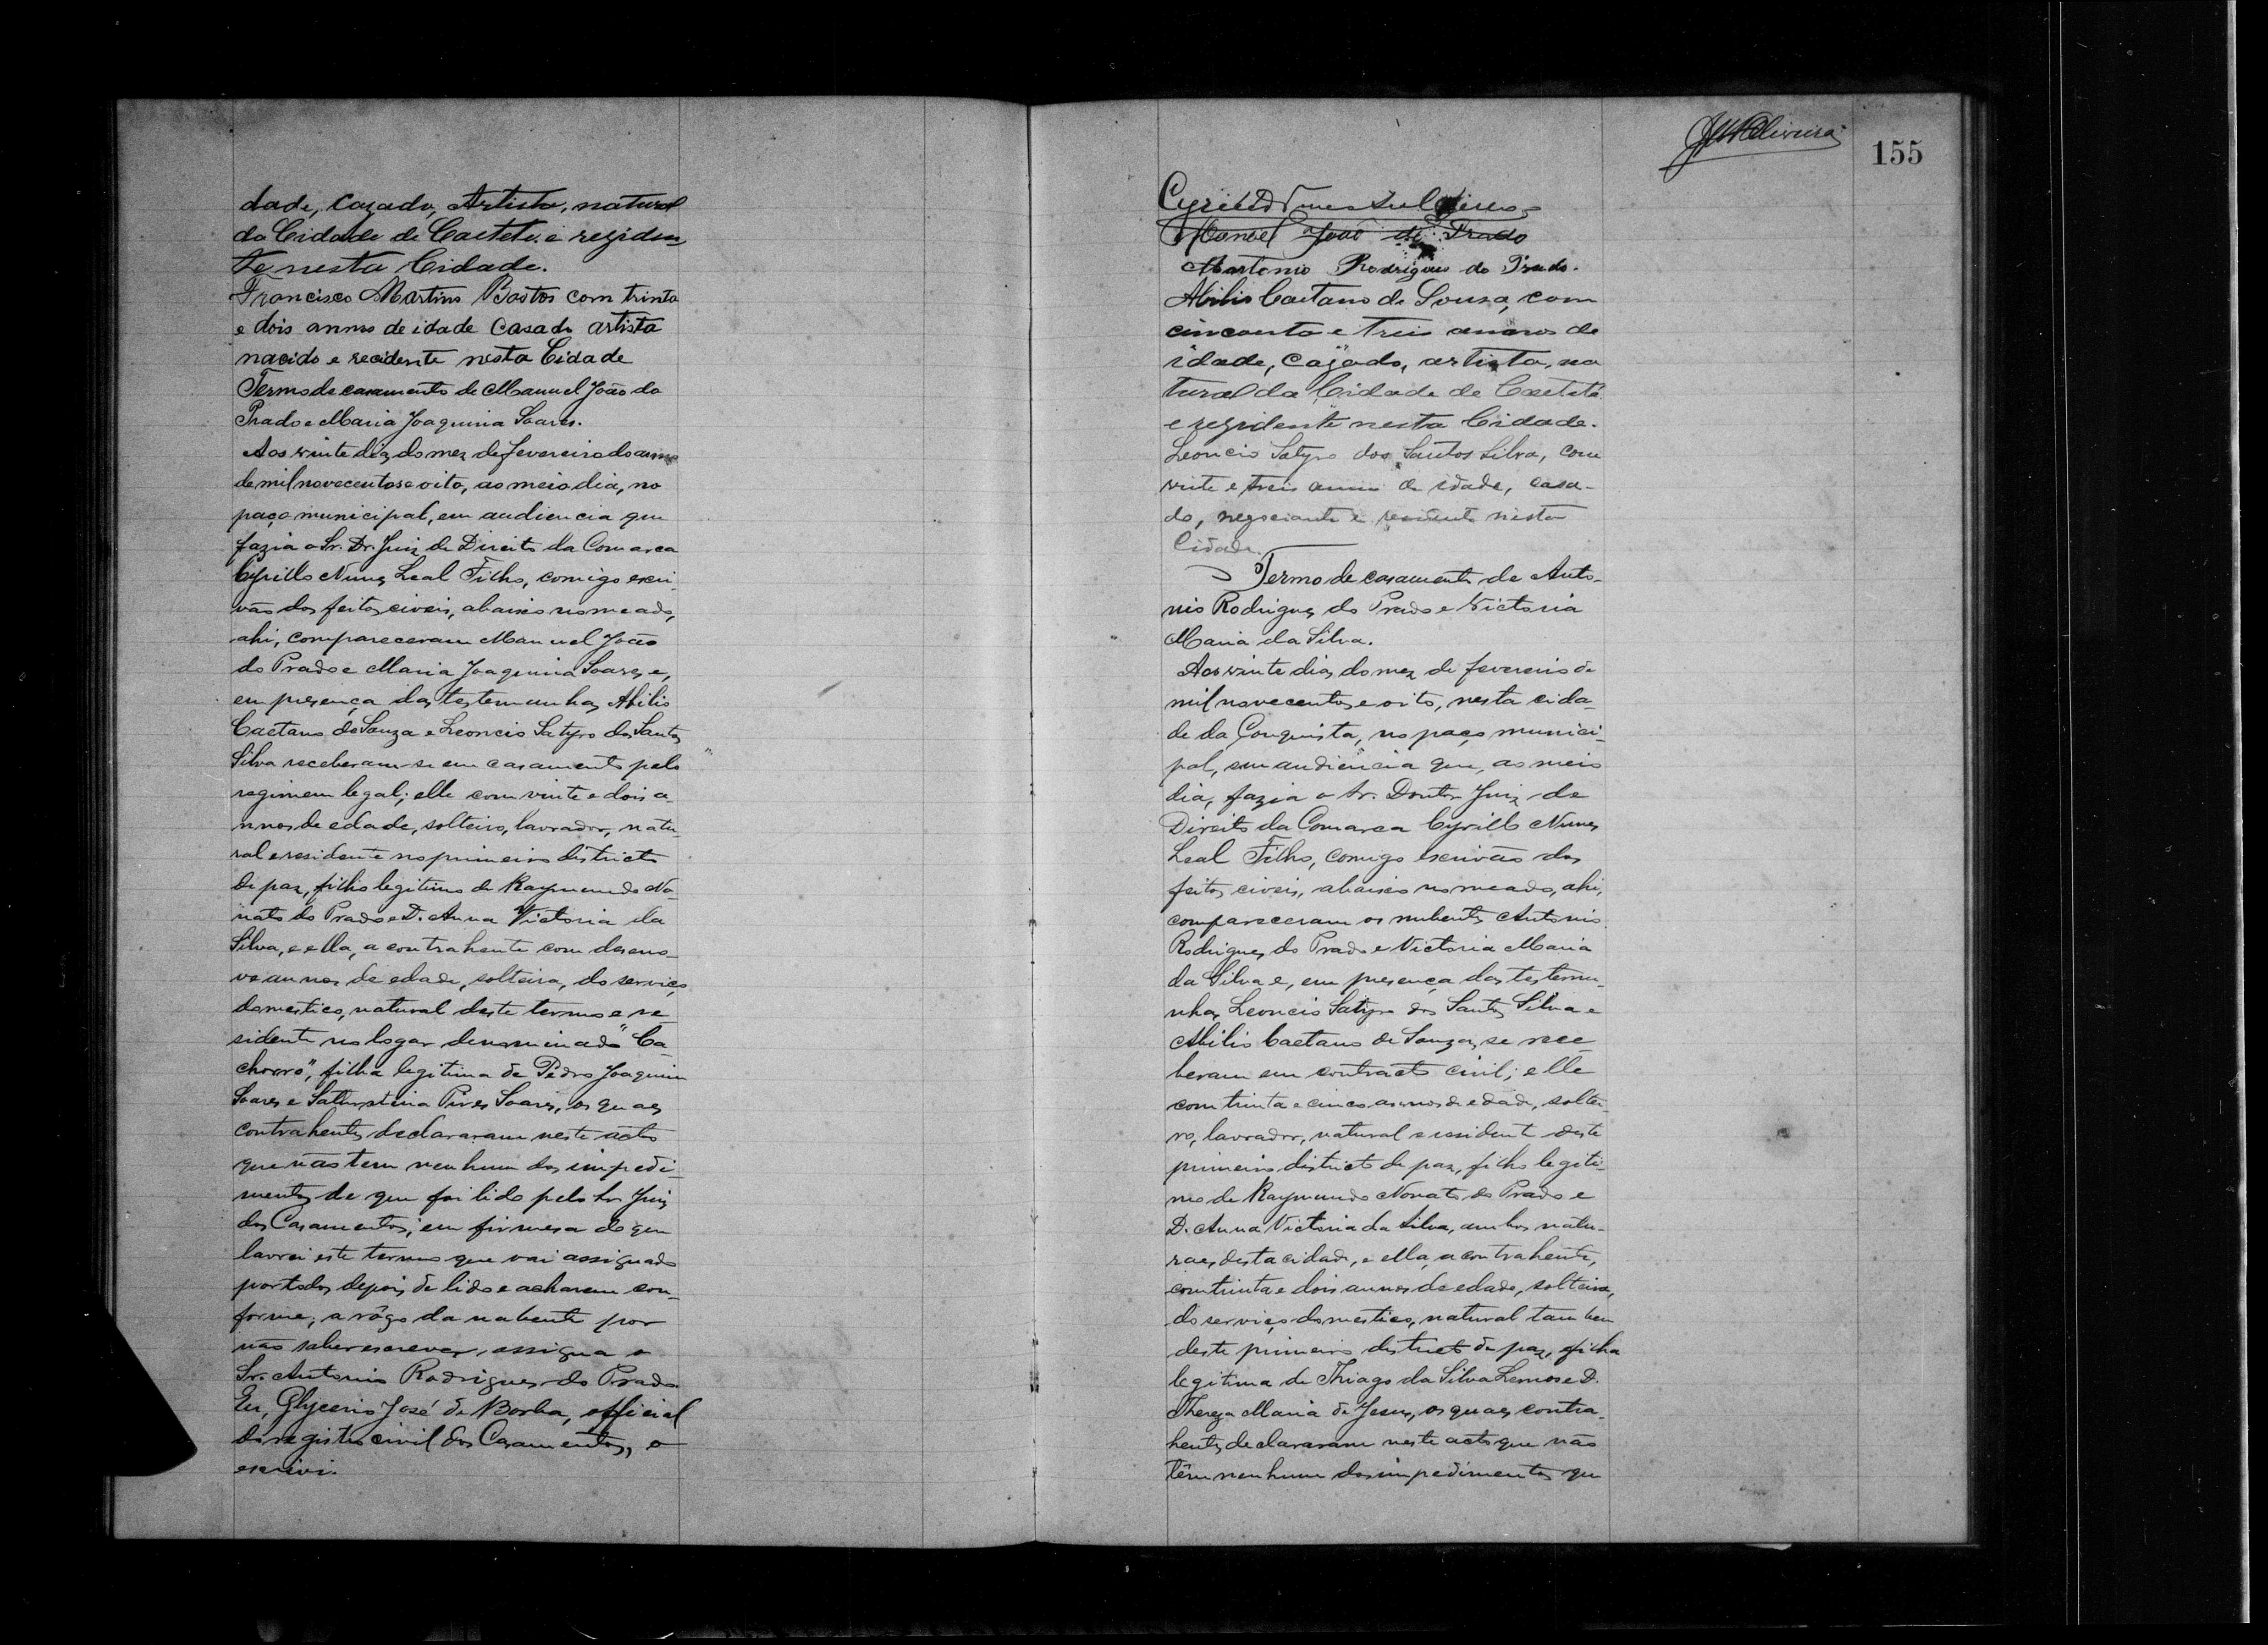 dade, cazado, Artista, natural
da Cidade de Caeteté e regiden
te nesta Cidade.
Francisco Martins Bastos com trinta
e dois annos de idade Casado artista
nacido e recidente nesta Cidade
Termo de casamento de Manuel João do
Prado e Maria Joaquina Soares.
Aos vinte dias do mez de fevereiro do anno
de mil novecentos e oito, ao meio dia, no
paço municipal, em audiencia que
fazia o Sr. Dr. Juiz de Direito da Comarca
Cyrillo Nunes Leal Filho, comigo escri-
vão dos feitos civeis, abaixo nomeado,
ahi, compareceram Manuel João
do Prado e Maria Joaquina Soares e,
em presença das testemunhas Abilio
Caetano de Souza e Leoncio Satyro dos Santos
Silva receberam-se em casamento pelo
regimem legal; elle com vinte e dois a-
nnos de edade, solteiro, lavrador, natu-
ral e residente no primeiro districto
de paz, filho legitimo de Raymundo No-
nato do Prado e D. Anna Victoria da
Silva, e ella, a contrahente com deseno-
ve annos de edade, solteira, do serviço
domestico, natural deste termo e re-
sidente no logar denominado "Ca-
chorro", filha legitima de Pedro Joaquim
Soares e Pires Soares, os quaes
contrahentes declararam neste acto
que não tem nenhum dos impedi-
mentos de que foi lido pelo Sr. Juiz
dos Casamentos; em firmesa do que
lavrei este termo que vai assignado
por todos depois de lido e acharem con-
forme; a rôgo da nubente por
não saber escrever, assigna o
Sr. Antonio Rodrigues do Prado.
Eu, Glycerio José de Borba, official
do registro civil dos Casamentos, o
escrivi.
155
Manoel João do Prado
Antonio Rodrigues do Prado.
Abilio Caetano de Souza, com
cincoenta e treis annos de
idade, cazado, artista, na
tural da Cidade de Caeteté
e regidente nesta Cidade.
Leoncio Satyro dos Santos Silva, com
vinte e treis annos de idade, casa-
do, negociante e residente nesta
Cidade.
Termo de casamento de Anto-
nio Rodrigues do Prado e Victoria
Maria da Silva.
Aos vinte dias do mez de fevereiro de
mil novecentos e oito, nesta cida-
de da Conquista, no paço munici-
pal, em audiencia que, ao meio
dia, fazia o Sr. Doutor Juiz de
Direito da Comarca Cyrillo Nunes
Leal Filho, comigo escrivão dos
feitos civeis, abaixo nomeado, ahi,
compareceram os nubentes Antonio
Rodrigues do Prado e Victoria Maria
da Silva e, em presença das testemu-
nhas Leoncio Satyro dos Santos Silva e
Abilio Caetano de Souza, se rece-
beram em contracto civil; elle
com trinta e cinco annos de edade, soltei-
ro, lavrador, natural e residente deste
primeiro districto de paz, filho legiti-
mo de Raymundo Nonato do Prado e
D. Anna Victoria da Silva, ambos natu-
raes desta cidade, e ella, a contrahente,
com trinta e dois annos de edade, solteira,
do serviço domestico, natural tambem
deste primeiro districto de paz, filha
legitima de Thiago da Silva Lemos e D.
Thereza Maria de Jesus, os quaes contra-
hentes declararam neste acto que não
têm nenhum dos impedimentos que